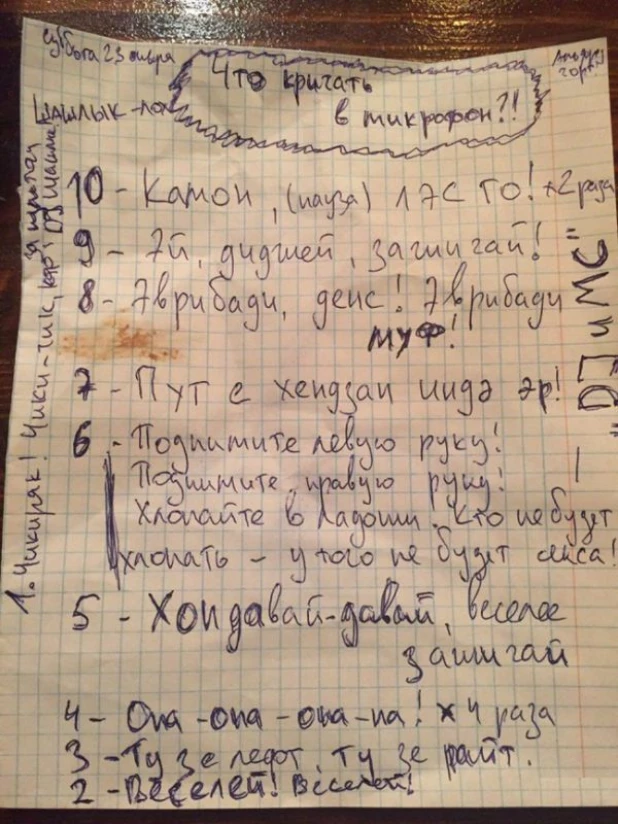 суббота 23 января
Что кричать
в микрофон?!
Шашлык-
10 - Камон, (пауза) ЛЭС ГО! x2 раза
9 - Эй, диджей, зажигай!
8 - Эврибади, денс! Эврибади
муф!
7 - Пут е хендзап индэ эр!
6 - Поднимите левую руку!
Поднимите правую руку!
Хлопайте в ладоши! Кто не будет
хлопать - у того не будет секса!
5 - Хоп давай-давай, веселее
зажигай
4 - Опа-опа-опа-па! x 4 раза
3 - Ту зе лефт, ту зе райт.
2 - Веселей! Веселей!
1. Чикиряк! Чики-чик,
"DJ и МС"